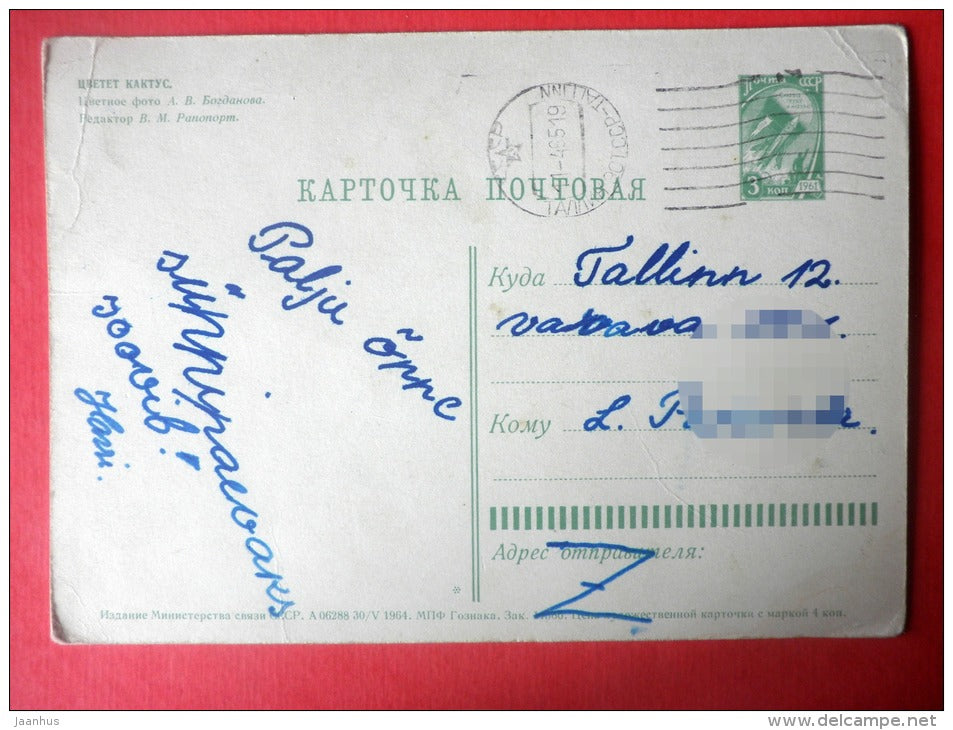 ЦВЕТЕТ КАКТУС.
Цветное фото А. В. Богданова.
Редактор В. М. Рапопорт.
ПОЧТА СССР
3 КОП
1961
КАРТОЧКА ПОЧТОВАЯ
Palju õnne
sünnipäevaks
soovib!
Куда Tallinn 12.
Кому L.
Адрес отправителя:
Издание Министерства связи СССР. А 06288 30/V 1964. МПФ Гознака. Зак. художественной карточки с маркой 4 коп.
jaanhus
www.delcampe.net